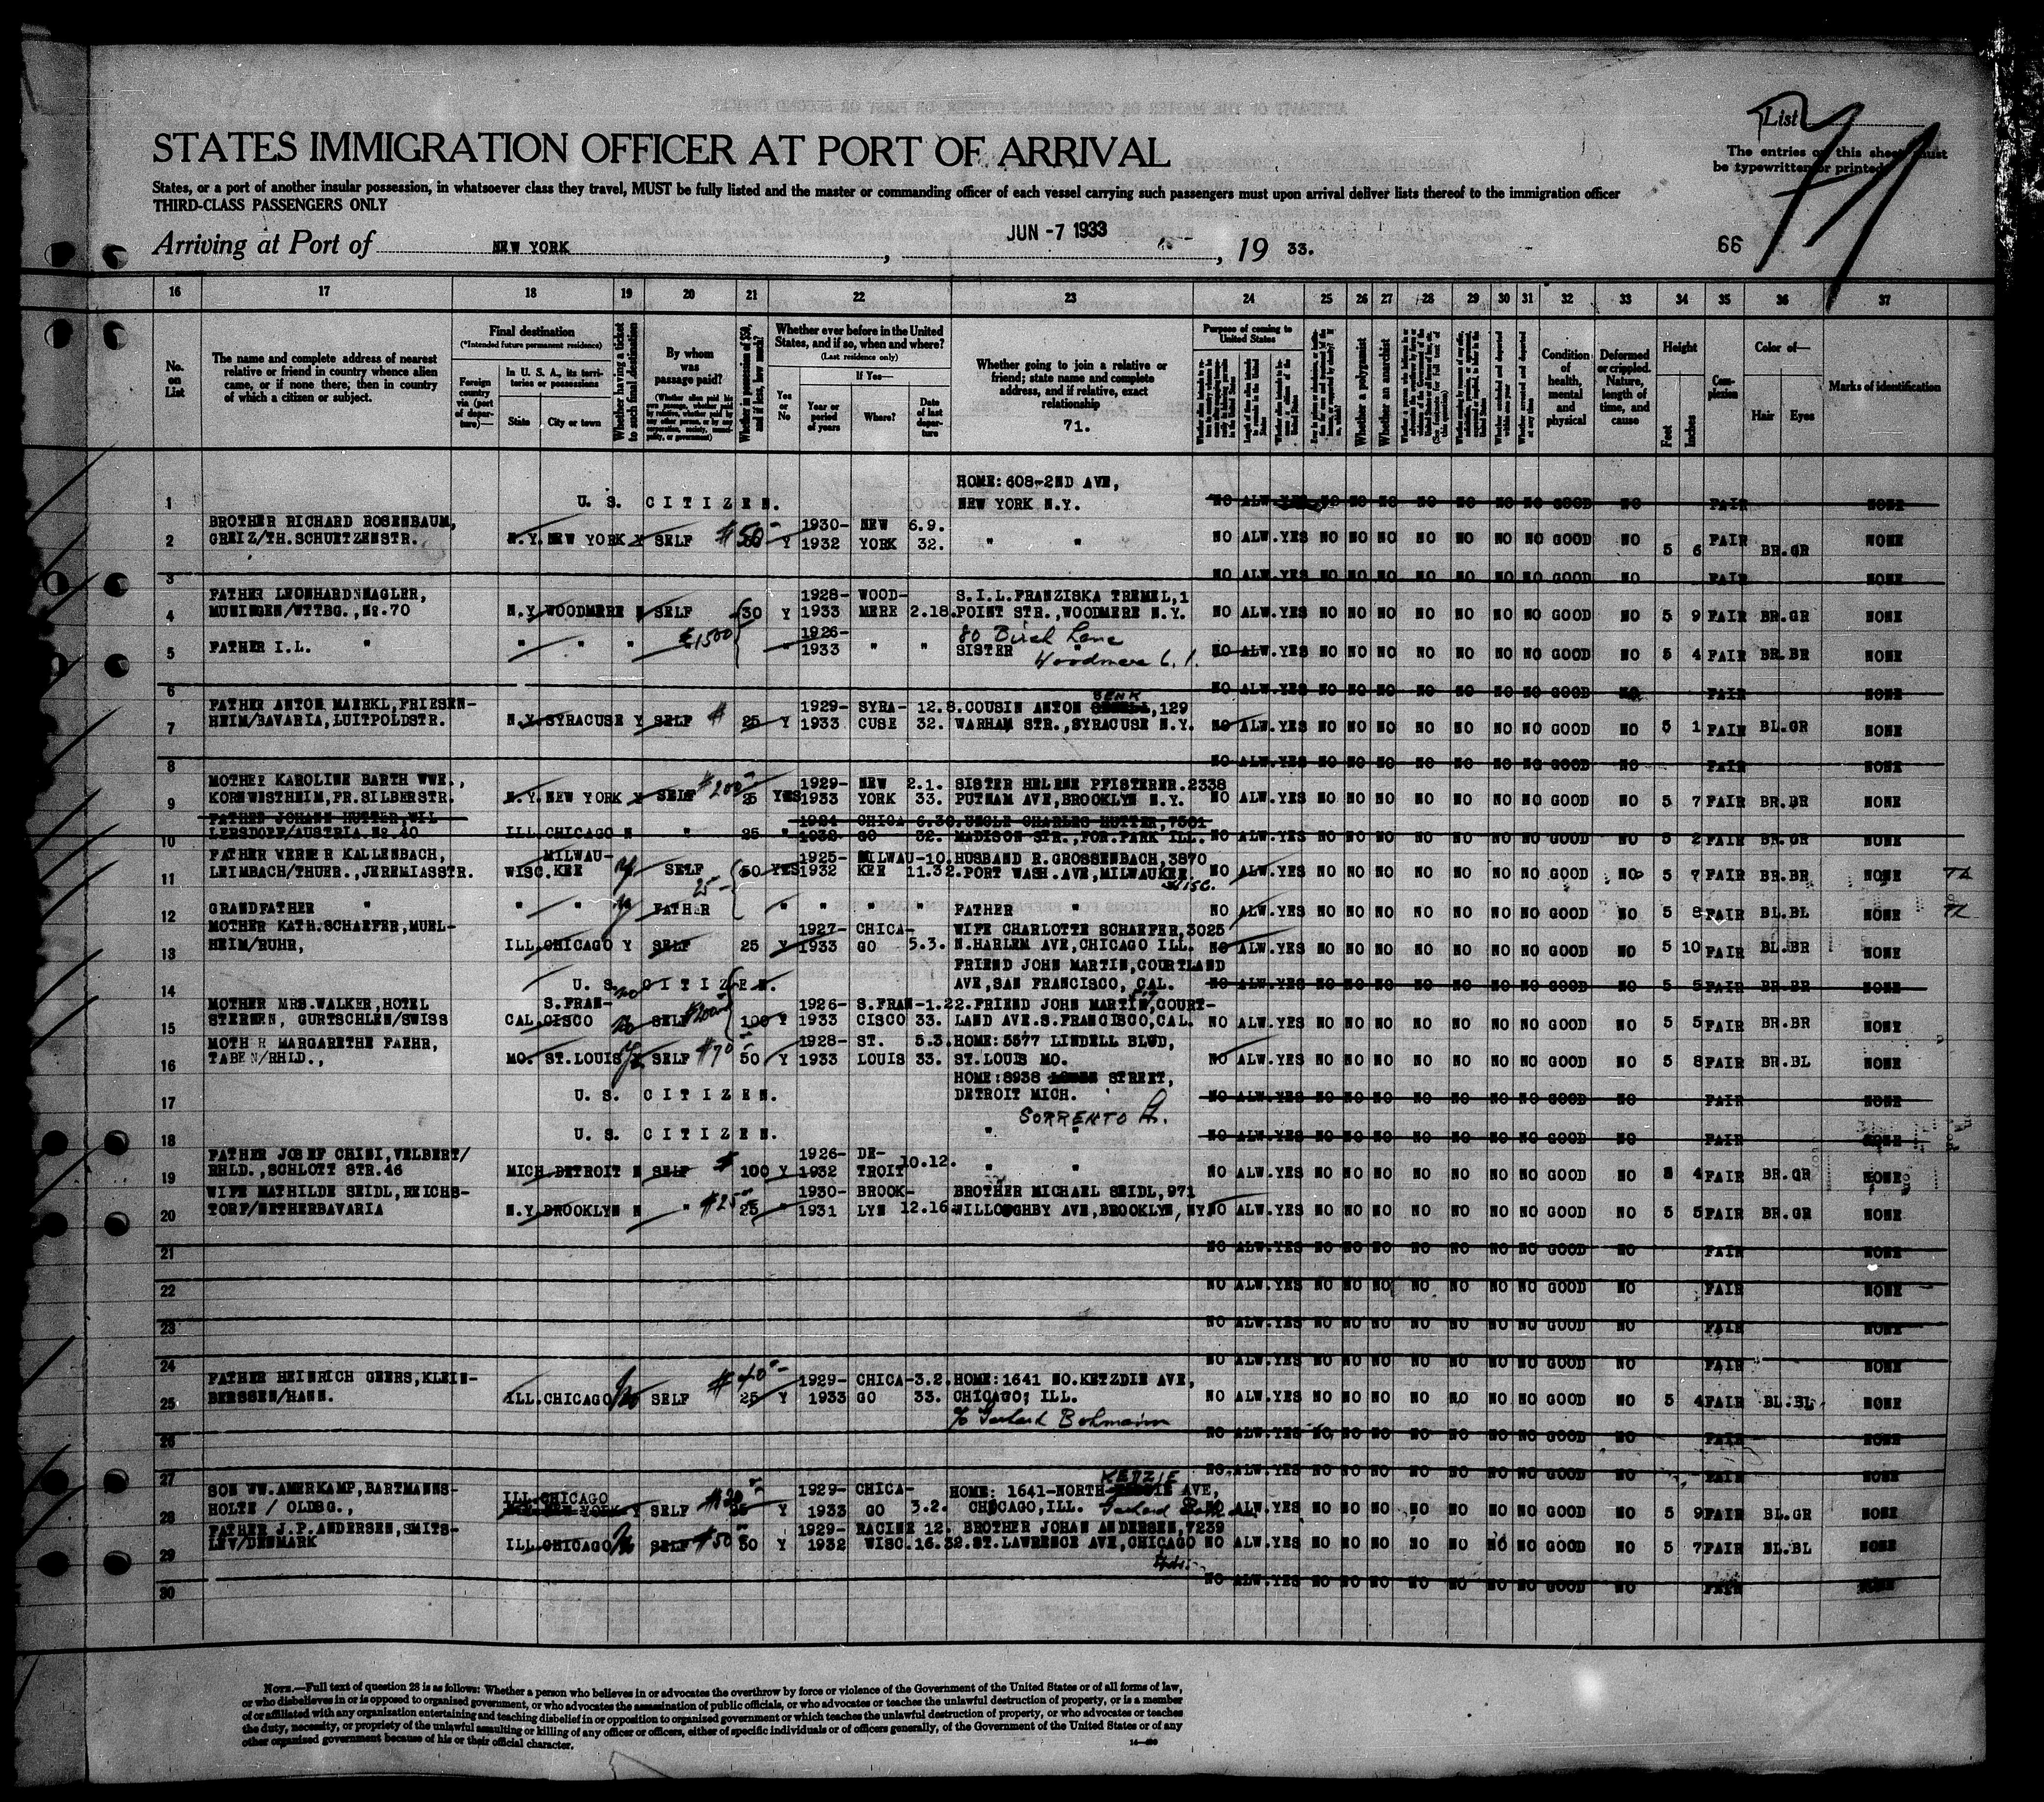 List
71
The entries on this sheet must
be typewritten or printed
STATES IMMIGRATION OFFICER AT PORT OF ARRIVAL
States, or a port of another insular possession, in whatsoever class they travel, MUST be fully listed and the master or commanding officer of each vessel carrying such passengers must upon arrival deliver lists thereof to the immigration officer
THIRD-CLASS PASSENGERS ONLY
Arriving at Port of NEW YORK, JUN -7 1933, 19 33.
66
16 17 18 19 20 21 22 23 24 25 26 27 28 29 30 31 32 33 34 35 36 37
No. on List
The name and complete address of nearest relative or friend in country whence alien came, or if none there, then in country of which a citizen or subject.
Final destination
(*Intended future permanent residence)
Foreign country via (port of departure)—
In U. S. A., its territories or possessions
State City or town
Whether having a ticket to such final destination
By whom was passage paid?
Whether in possession of $50, and if less, how much?
Whether ever before in the United States, and if so, when and where?
(Last residence only)
Yes or No
If Yes—
Year or period of years
Where?
Date of last departure
Whether going to join a relative or friend; state name and complete address, and if relative, exact relationship
71.
Purpose of coming to United States
Whether a polygamist
Whether an anarchist
Condition of health, mental and physical
Deformed or crippled. Nature, length of time, and cause
Height
Feet Inches
Complexion
Color of—
Hair Eyes
Marks of identification
HOME: 608-2ND AVE,
1 U. S. CITIZEN. NEW YORK N.Y. NO ALW. YES NO NO NO NO NO NO NO GOOD NO FAIR NONE
BROTHER RICHARD ROSENBAUM, 1930- NEW 6.9.
2 GREIZ/TH.SCHUETZENSTR. N.Y. NEW YORK Y SELF $50 Y 1932 YORK 32. " " NO ALW. YES NO NO NO NO NO NO NO GOOD NO 5 6 FAIR BR.GR NONE
3 NO ALW. YES NO NO NO NO NO NO NO GOOD NO FAIR NONE
FATHER LEONHARD NAGLER, 1928- WOOD- S.I.L.FRANZISKA TREMEL,1
4 MUNINGEN/WTTBG.,No.70 N.Y. WOODMERE N SELF 30 Y 1933 MERE 2.18. POINT STR.,WOODMERE N.Y. NO ALW. YES NO NO NO NO NO NO NO GOOD NO 5 9 FAIR BR.GR NONE
1926- 80 Birch Lane
5 FATHER I.L. " " " " $1500 " 1933 " " SISTER " Woodmere L. I. NO ALW. YES NO NO NO NO NO NO NO GOOD NO 5 4 FAIR BR.BR NONE
6 NO ALW. YES NO NO NO NO NO NO NO GOOD NO FAIR NONE
FATHER ANTON MAERKL,FRIESEN- 1929- SYRA- 12.8. COUSIN ANTON BENK,129
7 HEIM/BAVARIA,LUITPOLDSTR. N.Y. SYRACUSE Y SELF $ 25 Y 1933 CUSE 32. WARHAM STR.,SYRACUSE N.Y. NO ALW. YES NO NO NO NO NO NO NO GOOD NO 5 1 FAIR BL.GR NONE
8 NO ALW. YES NO NO NO NO NO NO NO GOOD NO FAIR NONE
MOTHER KAROLINE BARTH WWE., $200 1929- NEW 2.1. SISTER HELENE PFISTERER.2338
9 KORNWESTHEIM,FR.SILBERSTR. N.Y. NEW YORK Y SELF 25 YES 1933 YORK 33. PUTNAM AVE,BROOKLYN N.Y. NO ALW. YES NO NO NO NO NO NO NO GOOD NO 5 7 FAIR BR.BR NONE
FATHER JOHANN HUTTER,WIL- 1924 CHICA 6.30. UNCLE CHARLES HUTTER,7501
10 LERSDORF/AUSTRIA.No.40 ILL. CHICAGO N " 25 " 1932- GO 32. MADISON STR.,FOR.PARK ILL. NO ALW. YES NO NO NO NO NO NO NO GOOD NO 5 2 FAIR BR.GR NONE
FATHER WERNER KALLENBACH, MILWAU- 1925- MILWAU- 10. HUSBAND R.GROSSENBACH,3870
11 LEIMBACH/THUER.,JEREMIASSTR. WISC. KEE Y SELF 50 YES 1932 KEE 11.32. PORT WASH.AVE,MILWAUKEE. NO ALW. YES NO NO NO NO NO NO NO GOOD NO 5 7 FAIR BR.BR NONE
25 WISC.
12 GRANDFATHER " " " Y FATHER " " " " FATHER " NO ALW. YES NO NO NO NO NO NO NO GOOD NO 5 8 FAIR BL.BL NONE
MOTHER KATH.SCHAEFER,MUEL- 1927- CHICA- WIFE CHARLOTTE SCHAEFER,3025
13 HEIM/RUHR, ILL. CHICAGO Y SELF 25 Y 1933 GO 5.3. N.HARLEM AVE,CHICAGO ILL. NO ALW. YES NO NO NO NO NO NO NO GOOD NO 5 10 FAIR BL.BR NONE
FRIEND JOHN MARTIN,COURTLAND
14 U. S. CITIZEN. AVE,SAN FRANCISCO, CAL. NO ALW. YES NO NO NO NO NO NO NO GOOD NO 5 5 FAIR BR.BR NONE
MOTHER MRS.WALKER,HOTEL S.FRAN- $200 1926- S.FRAN- 1.22. FRIEND JOHN MARTIN,COURT-
15 STERNEN, GURTSCHLEN/SWISS CAL. CISCO SELF 100 Y 1933 CISCO 33. LAND AVE.S.FRANCISCO,CAL. NO ALW. YES NO NO NO NO NO NO NO GOOD NO 5 5 FAIR BR.BR NONE
MOTHER MARGARETHE FAEHR, 1928- ST. 5.3. HOME: 5577 LINDELL BLVD,
16 TABEN/RHLD., MO. ST.LOUIS SELF $70 50 Y 1933 LOUIS 33. ST.LOUIS MO. NO ALW. YES NO NO NO NO NO NO NO GOOD NO 5 8 FAIR BR.BL NONE
HOME:8938 STREET,
17 U. S. CITIZEN. DETROIT MICH. NO ALW. YES NO NO NO NO NO NO NO GOOD NO FAIR NONE
SORRENTO
18 U. S. CITIZEN. " " NO ALW. YES NO NO NO NO NO NO NO GOOD NO FAIR NONE
FATHER JOSEF CHINI,VELBERT/ 1926- DE-
19 RHLD.,SCHLOTT STR.46 MICH. DETROIT N SELF $ 100 Y 1932 TROIT 10.12. " " NO ALW. YES NO NO NO NO NO NO NO GOOD NO 5 4 FAIR BR.GR NONE
WIFE MATHILDE SEIDL,REICHS- 1930- BROOK- BROTHER MICHAEL SEIDL,971
20 TORF/NETHERBAVARIA N.Y. BROOKLYN N " $25 25 " 1931 LYN 12.16. WILLOUGHBY AVE,BROOKLYN,NY. NO ALW. YES NO NO NO NO NO NO NO GOOD NO 5 5 FAIR BR.GR NONE
21 NO ALW. YES NO NO NO NO NO NO NO GOOD NO FAIR NONE
22 NO ALW. YES NO NO NO NO NO NO NO GOOD NO FAIR NONE
23 NO ALW. YES NO NO NO NO NO NO NO GOOD NO FAIR NONE
24 NO ALW. YES NO NO NO NO NO NO NO GOOD NO FAIR NONE
FATHER HEINRICH GEERS,KLEIN- $40 1929- CHICA- 3.2. HOME: 1641 NO.KETZDIE AVE,
25 BERSSEN/HANN. ILL. CHICAGO SELF 25 Y 1933 GO 33. CHICAGO, ILL. NO ALW. YES NO NO NO NO NO NO NO GOOD NO 5 4 FAIR BL.BL. NONE
c/o Gerhard Bohmann
26 NO ALW. YES NO NO NO NO NO NO NO GOOD NO FAIR NONE
27 NO ALW. YES NO NO NO NO NO NO NO GOOD NO FAIR NONE
KEDZIE
SON WM.AMERKAMP,BARTMANNS- ILL. CHICAGO 1929- CHICA- HOME: 1641-NORTH AVE,
28 HOLTE / OLDBG., NEW YORK Y SELF Y 1933 GO 3.2. CHICAGO,ILL. Gerhard NO ALW. YES NO NO NO NO NO NO NO GOOD NO 5 9 FAIR BL.GR NONE
FATHER J.P.ANDERSEN,SMITS- 1929- RACINE 12. BROTHER JOHAN ANDERSEN,7239
29 LEV/DENMARK ILL. CHICAGO SELF $50 50 Y 1932 WISC. 16.32. ST.LAWRENCE AVE,CHICAGO NO ALW. YES NO NO NO NO NO NO NO GOOD NO 5 7 FAIR BL.BL NONE
30 NO ALW. YES NO NO NO NO NO NO NO GOOD NO FAIR NONE
NOTE.—Full text of question 28 is as follows: Whether a person who believes in or advocates the overthrow by force or violence of the Government of the United States or of all forms of law,
or who disbelieves in or is opposed to organised government, or who advocates the assassination of public officials, or who advocates or teaches the unlawful destruction of property, or is a member
of or affiliated with any organisation entertaining and teaching disbelief in or opposition to organised government or which teaches the unlawful destruction of property, or who advocates or teaches
the duty, necessity, or propriety of the unlawful assaulting or killing of any officer or officers, either of specific individuals or of officers generally, of the Government of the United States or of any
other organised government because of his or their official character.